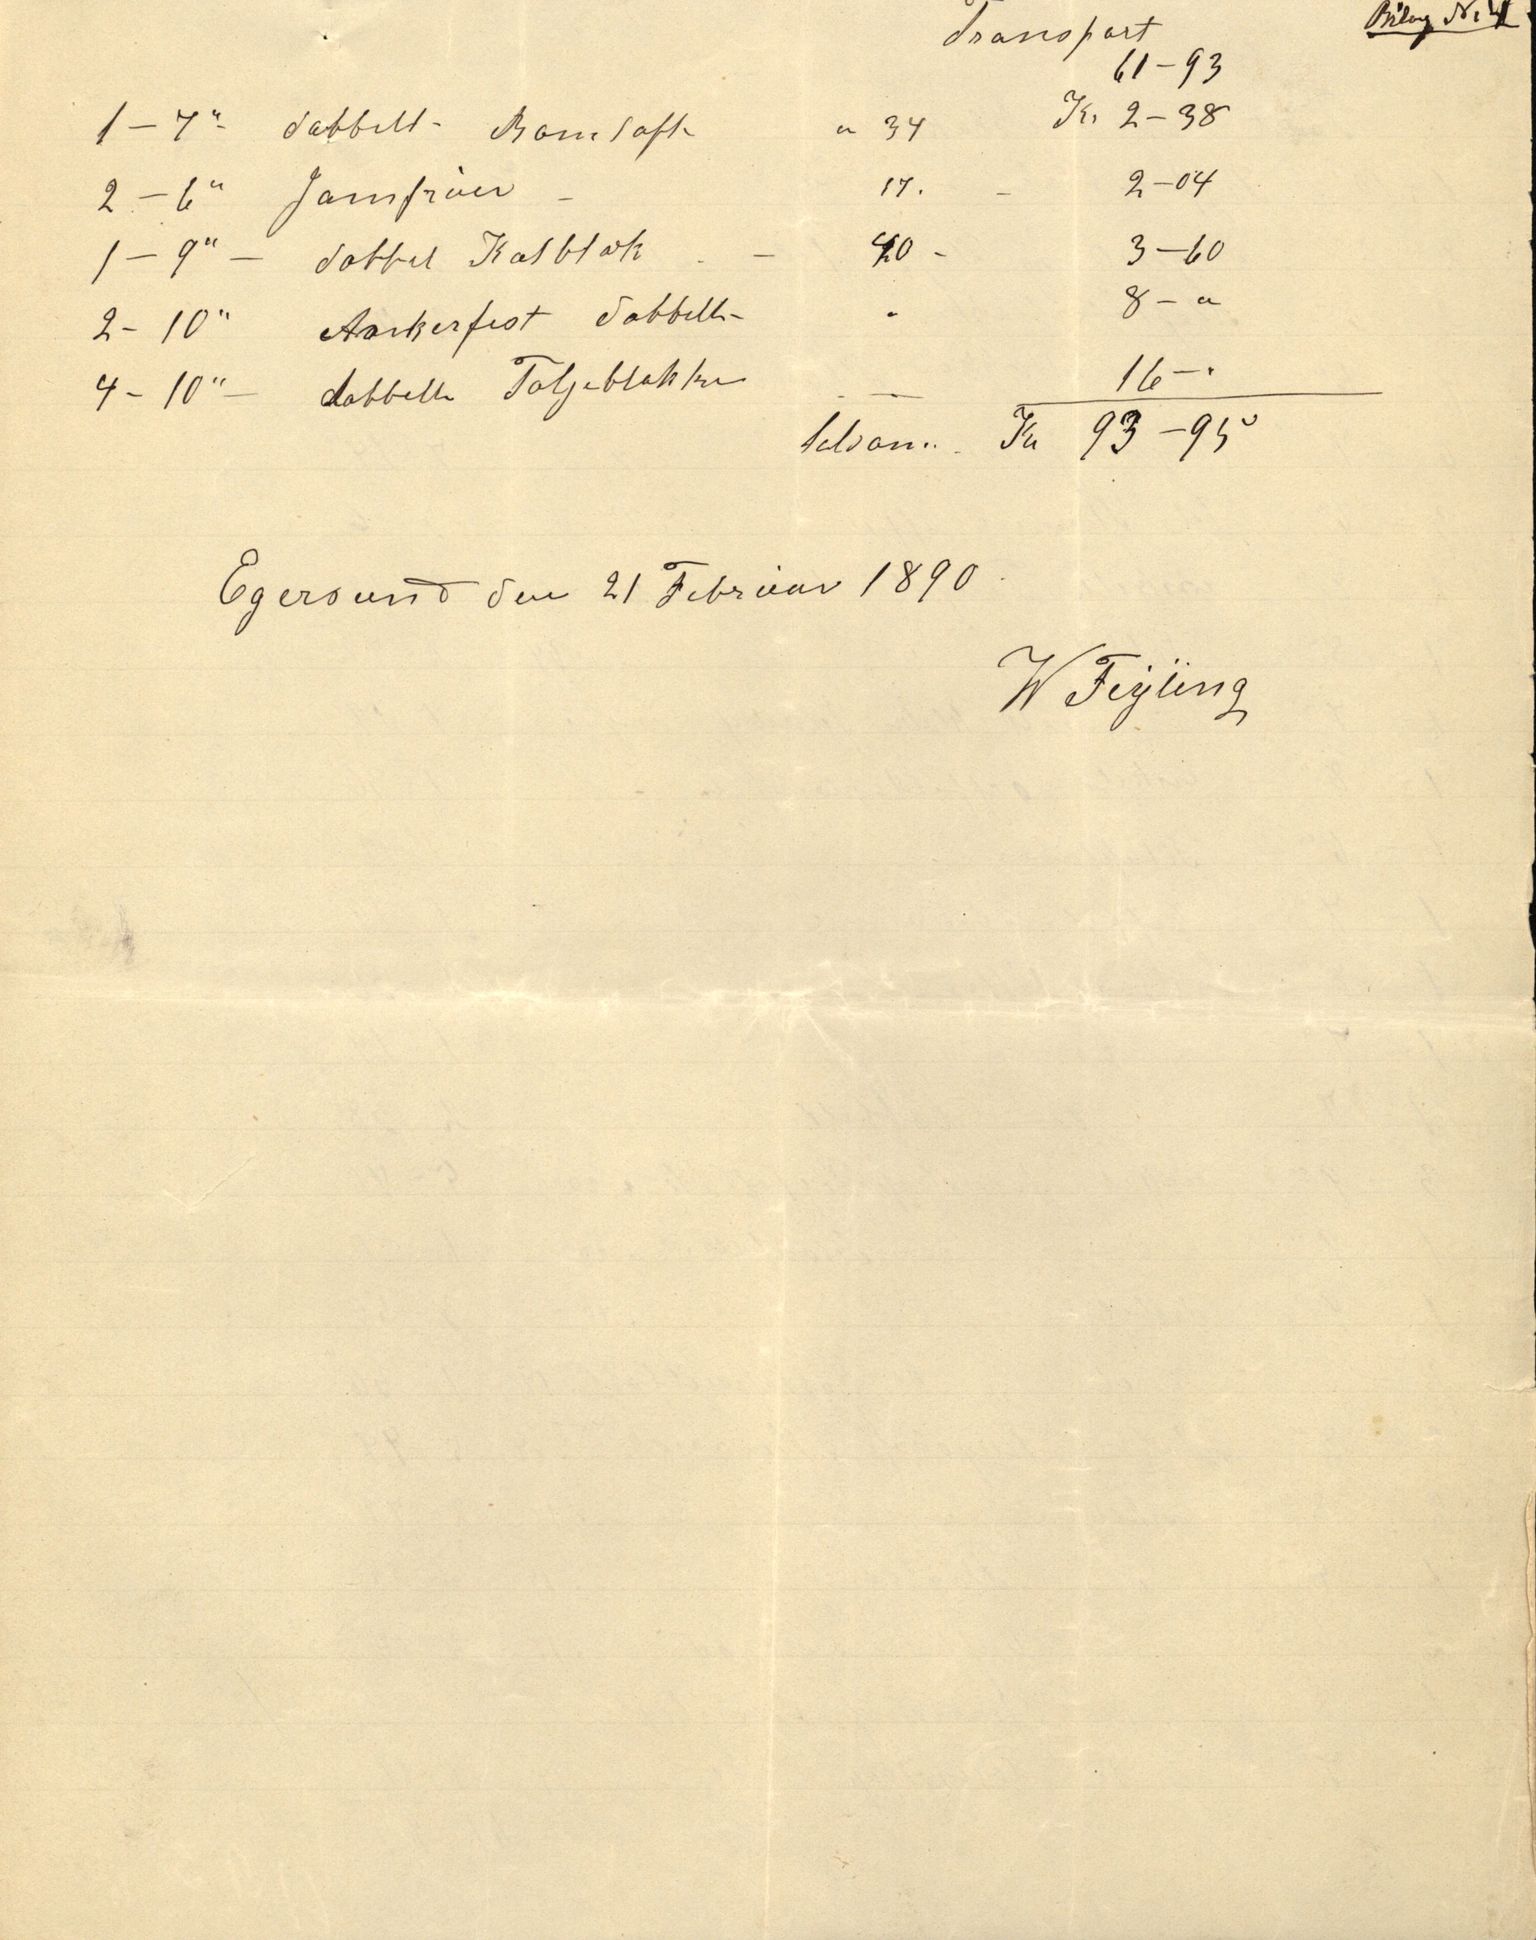 Bilag Nr 4
Transport
61-93
1 - 7" dobbelt Bomloft a 34 Kr 2-38
2 - 6" Jomfruer - 17. - 2-04
1 - 9" - dobbel Katblok - 40 - 3-60
2 - 10" Ankerfest dobbelte " 8-"
4 - 10" - dobbelte Taljeblokke - 16-"
Kr 93-95
Egersund den 21 Februar 1890
W Feyling